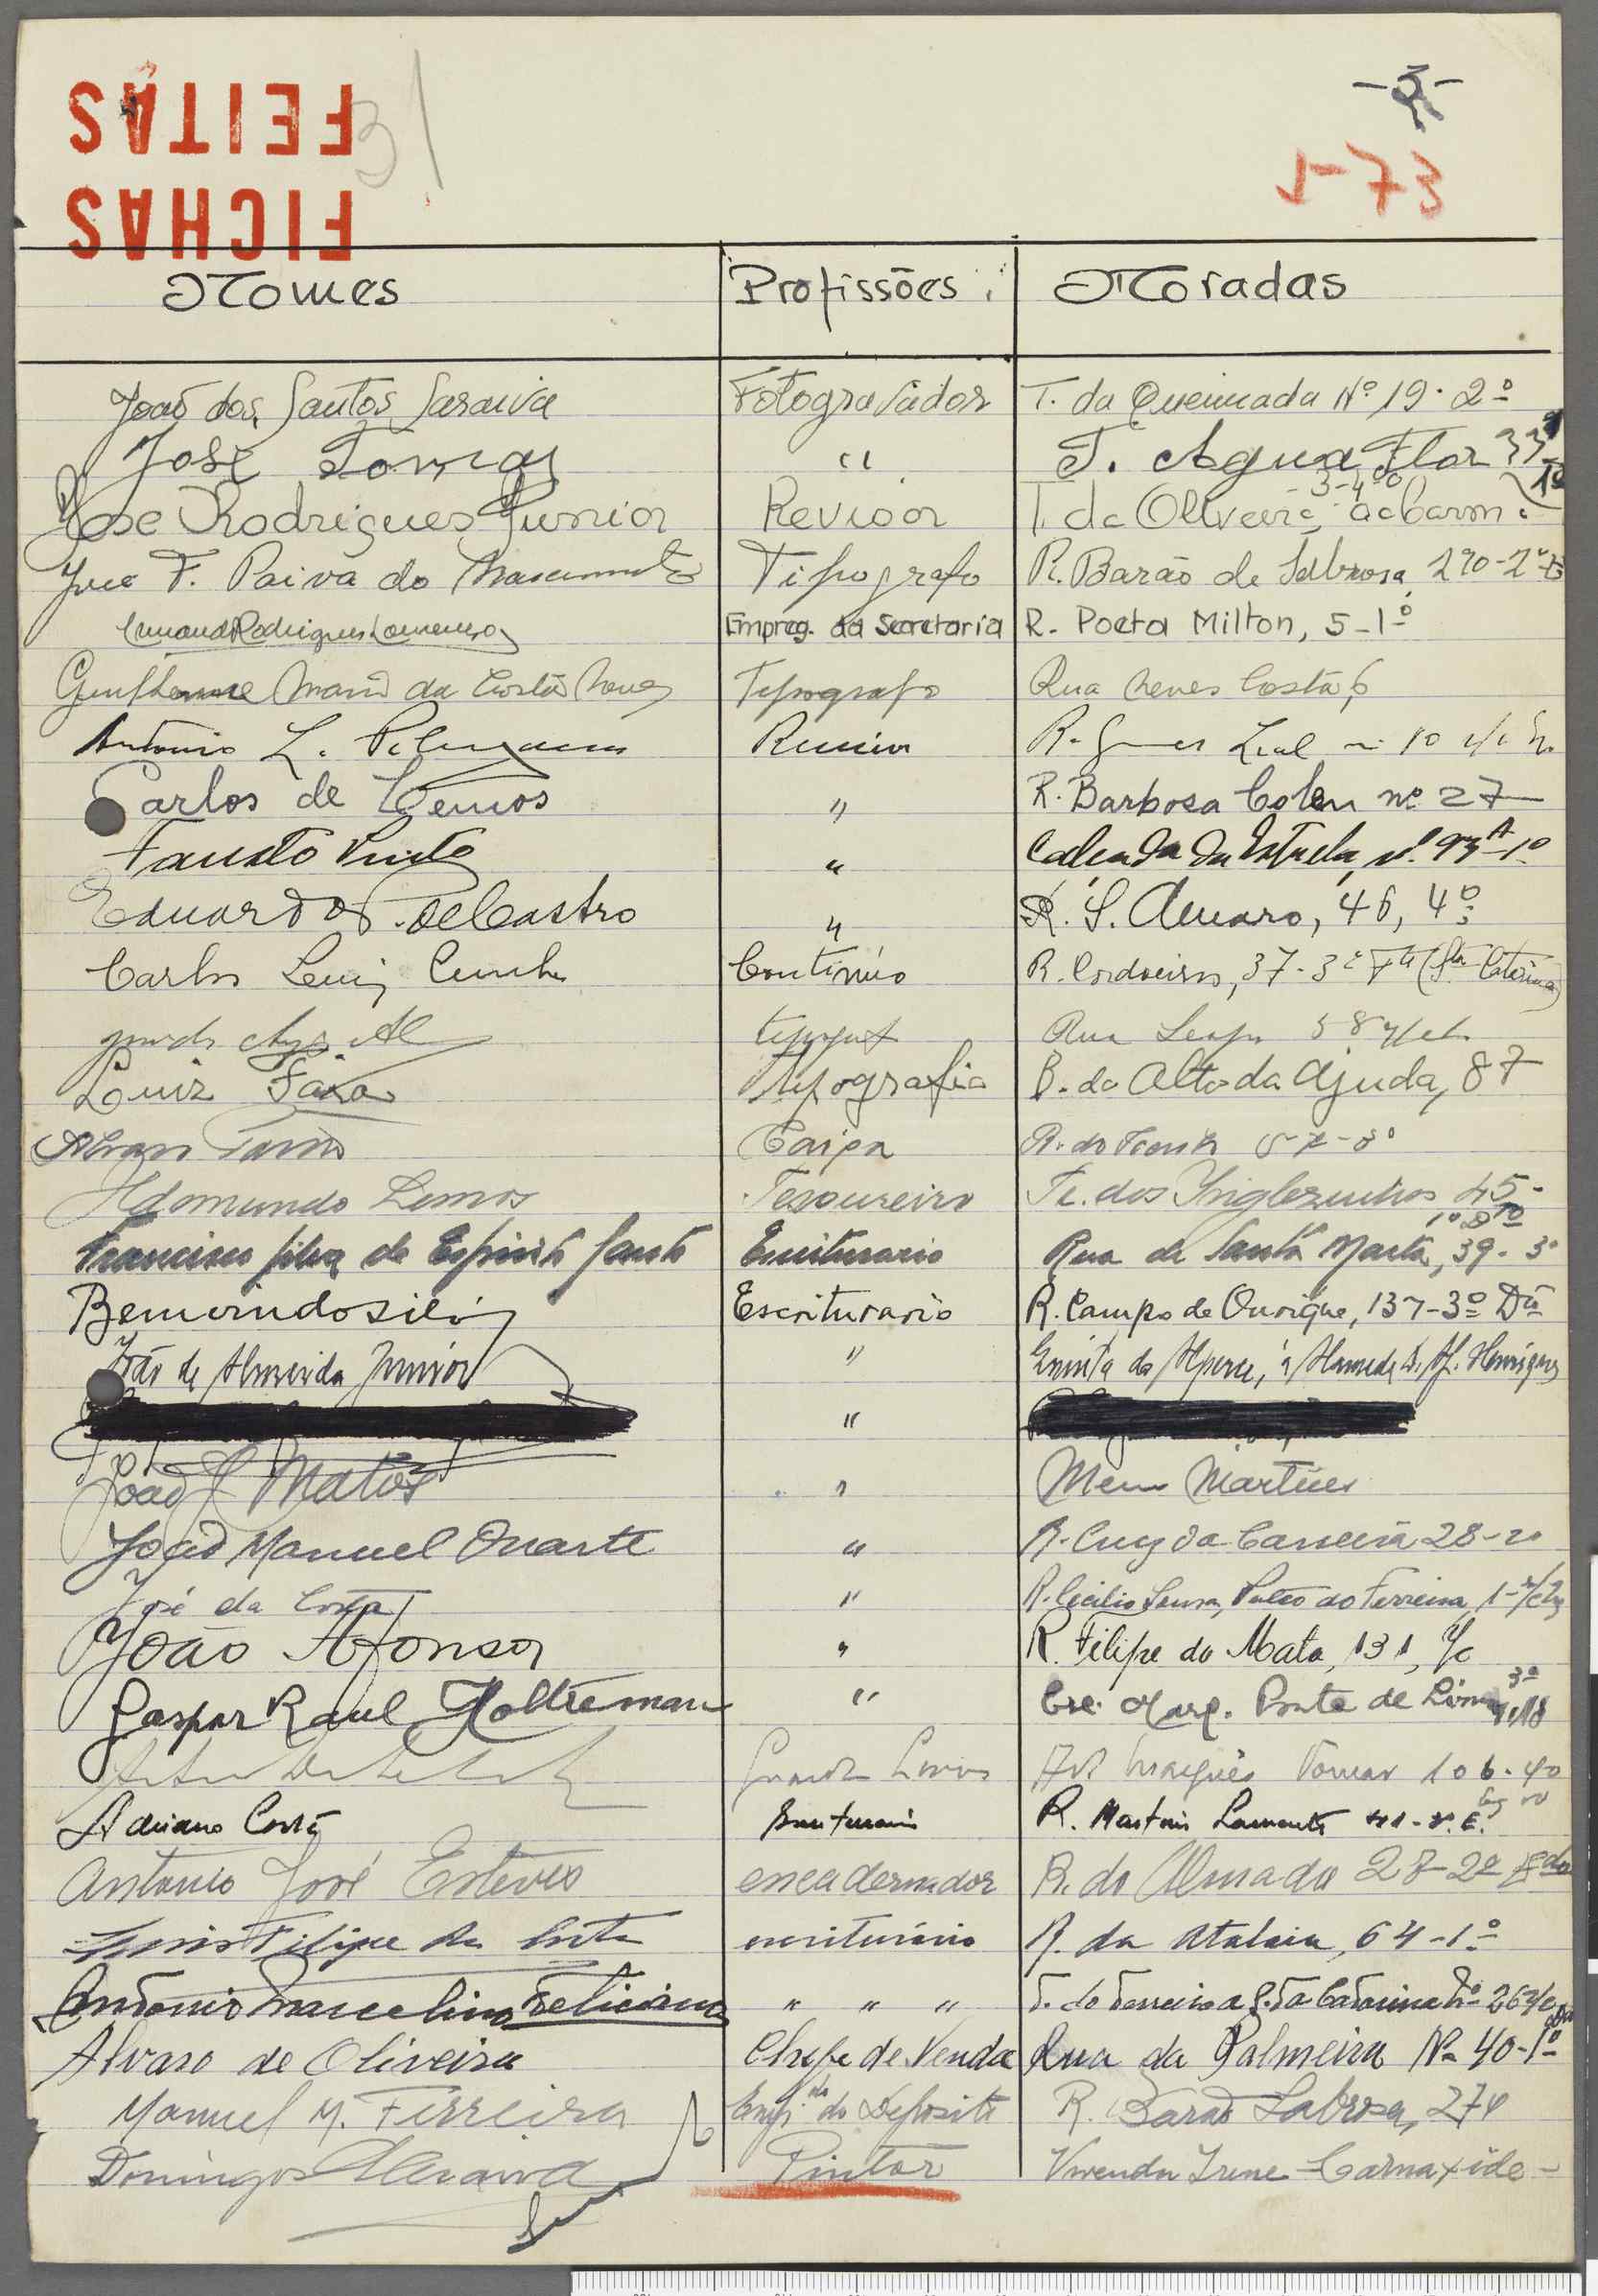 FICHAS
FEITAS
31
-3-
1-73
Nomes Profissões Moradas
João dos Santos Saraiva Fotogravador T. da Queimada Nº 19-2º
José Tomaz " T. Agua Flor 33 1º
José Rodrigues Junior Revisor T. da Oliveira, 3-4º
F. Paiva do Nascimento Tipografo R. Barão de Sabrosa, 270-2º
Rodrigues Lourenço Empreg. da Secretaria R. Poeta Milton, 5-1º
Guilherme Maria da Costa Neves Tipografo Rua Neves Costa, 6
Antonio L. Revisor R. Gomes Leal 10
Carlos de Lemos " R. Barbosa Colen nº 27
Fausto Pinto " Calçada da Estrela, nº 93A-1º
Eduardo F. de Castro " R. S. Amaro, 46, 4º
Carlos Luiz Cunha Continuo R. Cordoeiros, 37-3º Fte (Sta Catarina)
Rua 58
Luiz Faxa Tipografia B. do Alto da Ajuda, 87
Caixa R. do
Edmundo Lemos Tesoureiro Tr. dos Inglezinhos 45-1º Dto
Francisco Silva do Espirito Santo Escriturario Rua de Santa Marta, 39-3º
Bemvindo Silva Escriturario R. Campo de Ourique, 137-3º Dto
João de Almeida Junior " Quinta do á Alameda D. Af. Henriques
"
João Matos " Mem Martins
João Manuel Duarte " R. Cruz da Carreira 28-
José da Costa " R. Cecilio Sousa, Pateo do Ferreira, 1-
João Afonso " R. Filipe da Mata, 131, r/c
Gaspar Raul Holtreman " Marq. Ponte de Lima, 18 3º
Guarda Livros Av. Marquês Tomar 106-4º
Adriano Costa Escriturario R. Martens
Antonio José Esteves encadernador R. do Almada 27-2º Esdo
Luis Filipe da Costa escriturário R. da Atalaia, 64-1º
Antonio Marcelino Feliciano " " " T. do Terreiro a S.ta Catarina Nº 26 r/c
Alvaro de Oliveira Chefe de Venda Rua da Palmeira Nº 40-1º
Manuel M. Ferreira Emp.do do Deposito R. Barão Sabrosa, 274
Domingos Saraiva Pintor Vivenda Irene - Carnaxide -